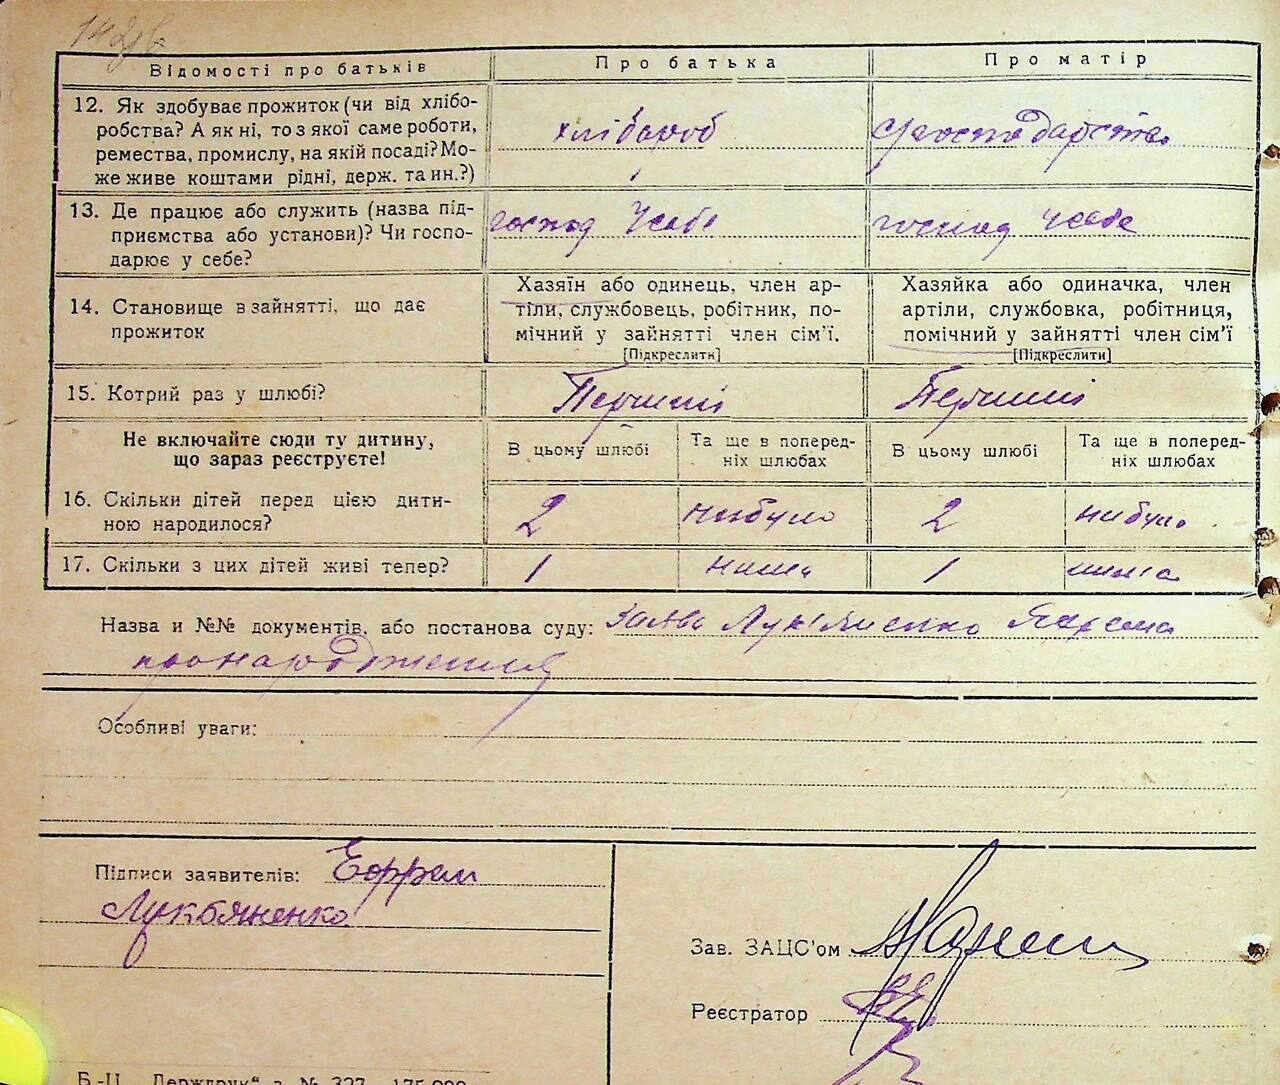 142зв
Відомості про батьків
Про батька
Про матір
12. Як здобуває прожиток (чи від хлібо-
робства? А як ні, то з якої саме роботи,
ремества, промислу, на якій посаді? Мо-
же живе коштами рідні, держ. та ин.?)
хлібороб
господарства
13. Де працює або служить (назва під-
приємства або установи)? Чи госпо-
дарює у себе?
господ у себе
господ у себе
14. Становище в зайнятті, що дає
прожиток
Хазяїн або одинець, член ар-
тіли, службовець, робітник, по-
мічний у зайнятті член сім'ї.
[Підкреслити]
Хазяйка або одиначка, член
артіли, службовка, робітниця,
помічний у зайнятті член сім'ї
[Підкреслити]
15. Котрий раз у шлюбі?
Перший
Перший
Не включайте сюди ту дитину,
що зараз реєструєте!
В цьому шлюбі
Та ще в поперед-
ніх шлюбах
В цьому шлюбі
Та ще в поперед-
ніх шлюбах
16. Скільки дітей перед цією дити-
ною народилося?
2
небуло
2
небуло
17. Скільки з цих дітей живі тепер?
1
нима
1
нима
Назва и №№ документів, або постанова суду: Заява Лукіяненко
про народження
Особливі уваги:
Підписи заявителів:
Лукбяненко
Зав. ЗАЦС'ом
Реєстратор
Б.-Ц. „Держдрук“ з. № 327 175.000